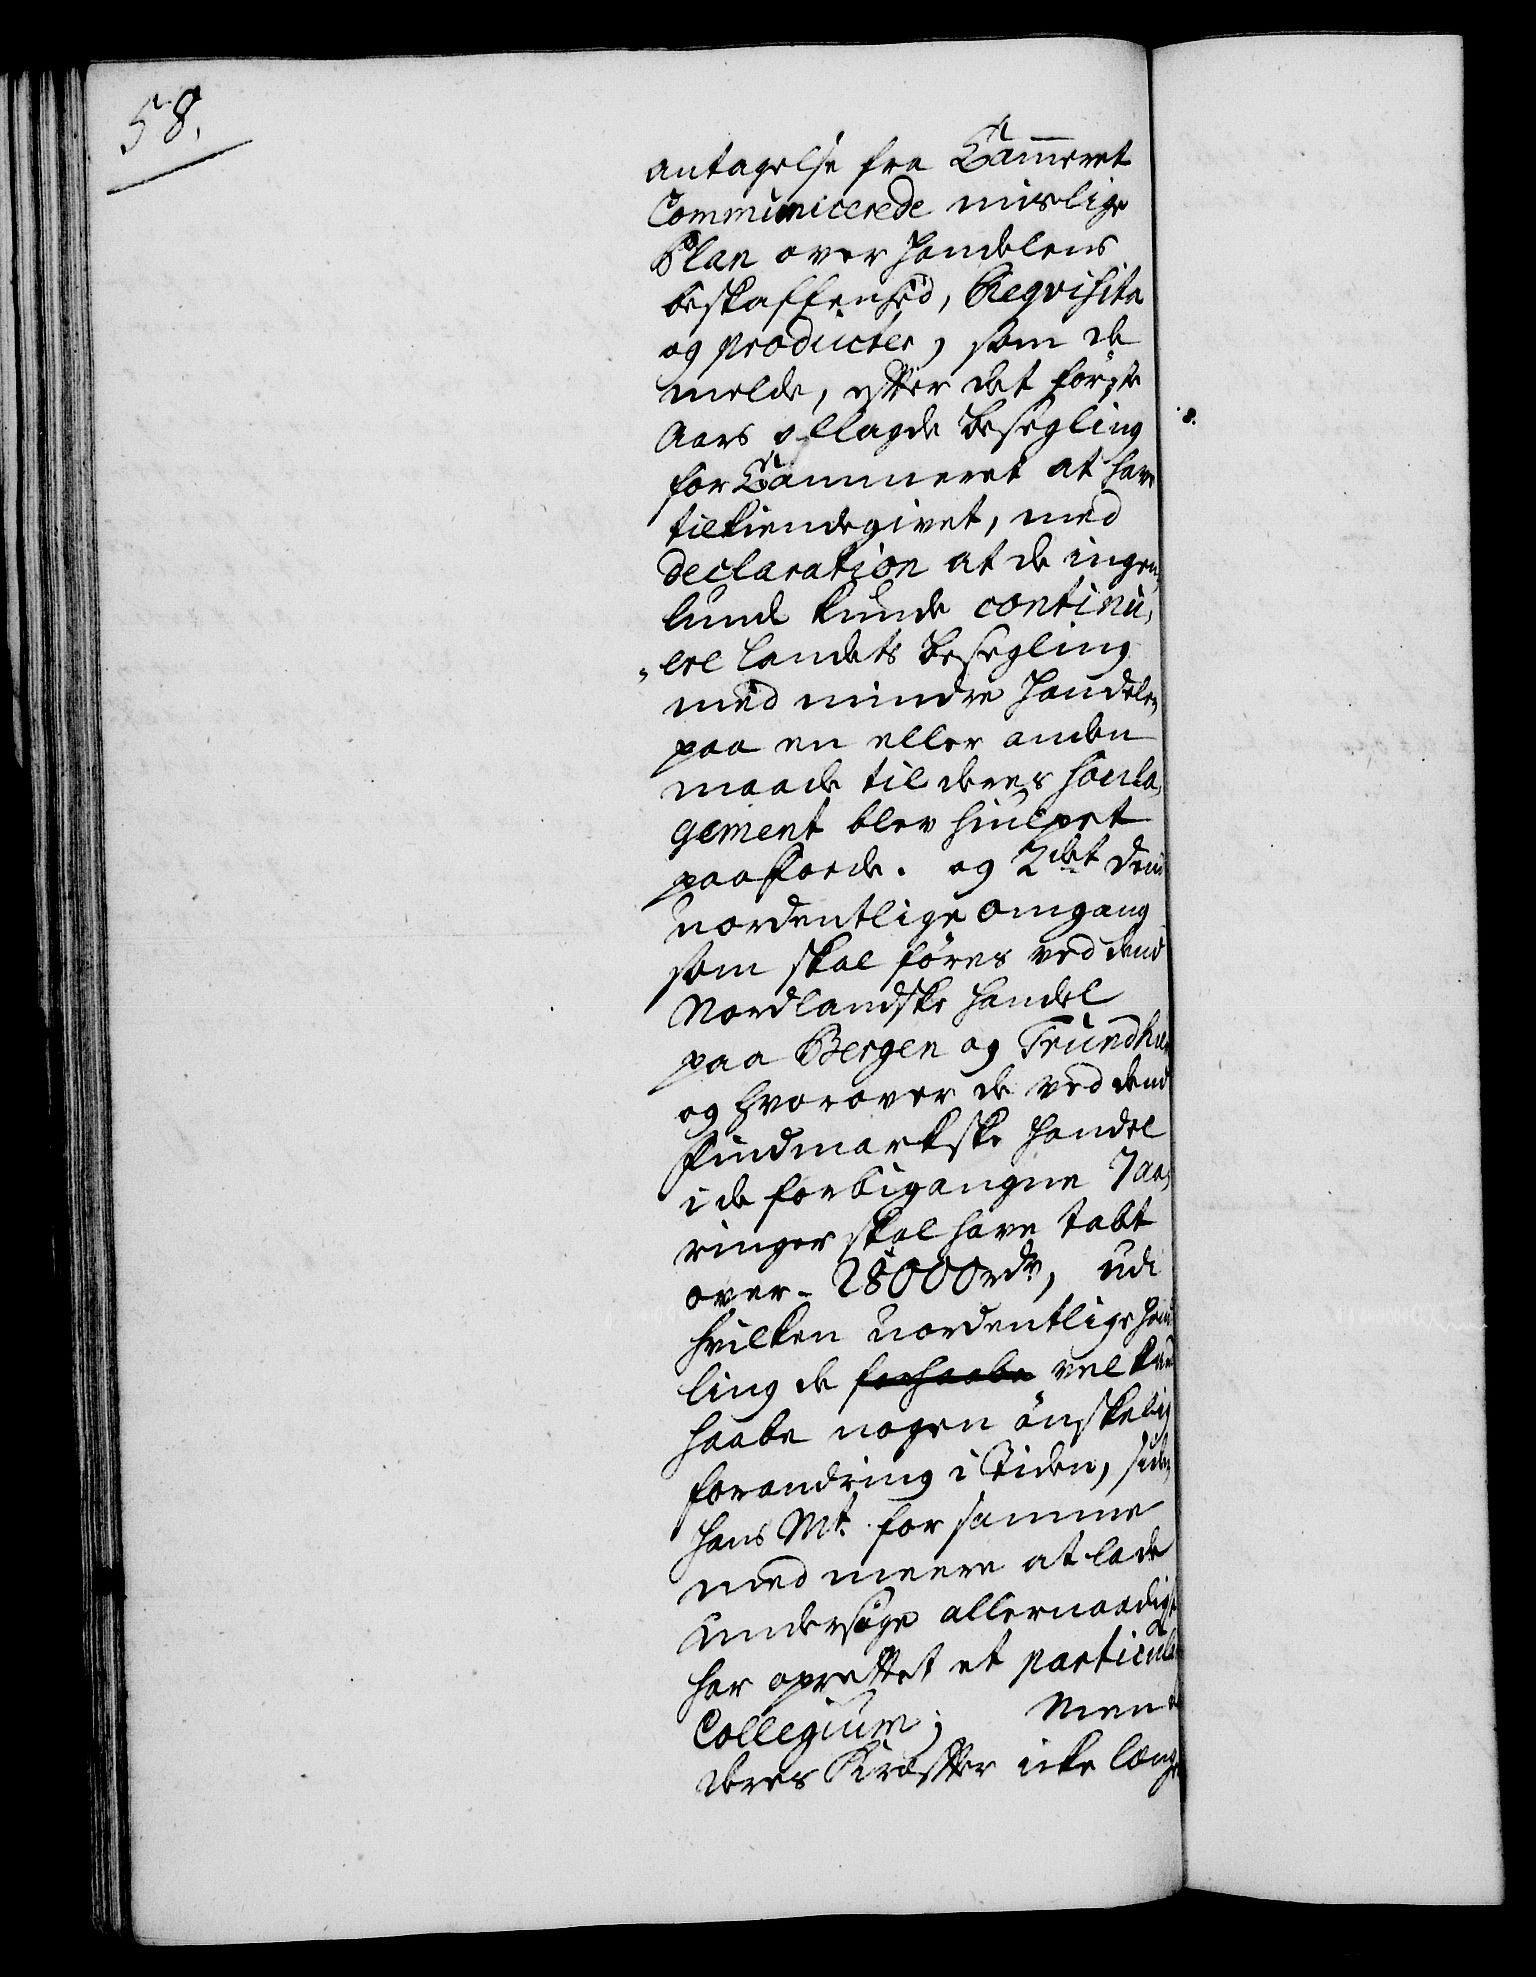 58.
antagelse fra Cammeret
Communicerede mislige
Plan over Handelens
beskaffenhed, Reqvisita
og producter, som de
melde, efter det første
Aars aflagde Besegling
for Cammeret at have
tilkiendegivet, med
declaration at de ingen,
lunde kunde continu,
,ere Landets Besegling
med mindre Handelen
paa en eller anden
maade til deres Soula,
gement blev hiulpet
paafode. og 2det Dend
uordentlige omgang
som skal føres ved dend
Nordlandske Handel
paa Bergen og Trundhem
og hvorover de ved dend
Findmarkske Handel
i de forbigangne 7 aa,
ringer skal have tabt
over - 28000 rdr, udi
hvilken uordentlige Hand
ling de forhaabe vel kand
haabe nogen ønskelig
forandring i Tiden, siden
Hans Mt. for samme
med meere at lade
undersøge allernaadigst
har oprettet et particulair
Collegium; Men
deres Kræfter icke længer